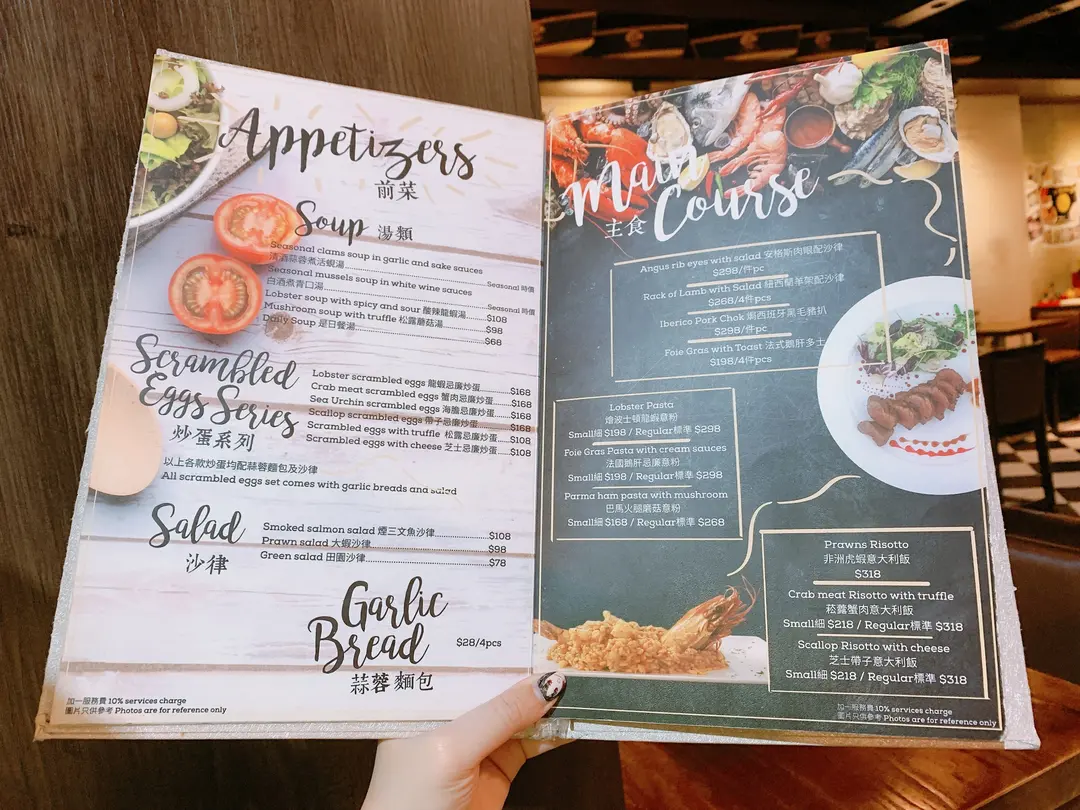 Appetizers
前菜
Soup 湯類
Seasonal clams soup in garlic and sake sauces
清酒蒜蓉煮活蜆湯 Seasonal 時價
Seasonal mussels soup in white wine sauces
白酒煮青口湯 Seasonal 時價
Lobster soup with spicy and sour 酸辣龍蝦湯 $108
Mushroom soup with truffle 松露蘑菇湯 $98
Daily Soup 是日餐湯 $68
Scrambled
Eggs Series
炒蛋系列
Lobster scrambled eggs 龍蝦忌廉炒蛋 $168
Crab meat scrambled eggs 蟹肉忌廉炒蛋 $168
Sea Urchin scrambled eggs 海膽忌廉炒蛋 $168
Scallop scrambled eggs 帶子忌廉炒蛋 $168
Scrambled eggs with truffle 松露忌廉炒蛋 $108
Scrambled eggs with cheese 芝士忌廉炒蛋 $108
以上各款炒蛋均配蒜蓉麵包及沙律
All scrambled eggs set comes with garlic breads and salad
Salad
沙律
Smoked salmon salad 煙三文魚沙律 $108
Prawn salad 大蝦沙律 $98
Green salad 田園沙律 $78
Garlic
Bread
蒜蓉麵包
$28/4pcs
加一服務費 10% services charge
圖片只供參考 Photos are for reference only
Main
Course
主食
Angus rib eyes with salad 安格斯肉眼配沙律
$298/件pc
Rack of Lamb with Salad 紐西蘭羊架配沙律
$268/4件pcs
Iberico Pork Chok 焗西班牙黑毛豬扒
$298/件pc
Foie Gras with Toast 法式鵝肝多士
$198/4件pcs
Lobster Pasta
燴波士頓龍蝦意粉
Small細 $198 / Regular標準 $298
Foie Gras Pasta with cream sauces
法國鵝肝忌廉意粉
Small細 $198 / Regular標準 $298
Parma ham pasta with mushroom
巴馬火腿蘑菇意粉
Small細 $168 / Regular標準 $268
Prawns Risotto
非洲虎蝦意大利飯
$318
Crab meat Risotto with truffle
菘露蟹肉意大利飯
Small細 $218 / Regular標準 $318
Scallop Risotto with cheese
芝士帶子意大利飯
Small細 $218 / Regular標準 $318
加一服務費 10% services charge
圖片只供參考 Photos are for reference only